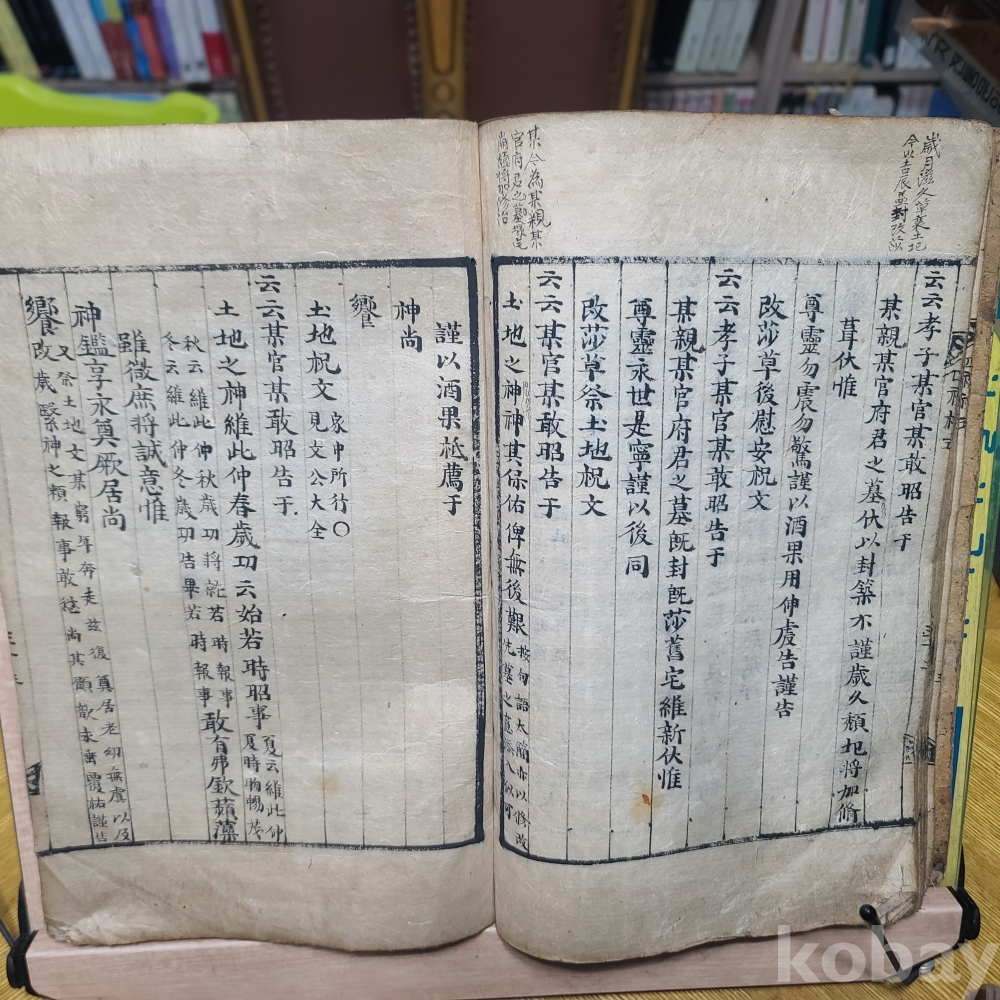 歲月滋久草衰土圮
今以吉辰益封改莎
某今為某親某
官府君之墓
崩頹將加修治
云云孝子某官某敢昭告于
某親某官府君之墓伏以封築不謹歲久頹圮將加脩
葺伏惟
尊靈勿震勿驚謹以酒果用伸虔告謹告
改莎草後慰安祝文
云云孝子某官某敢昭告于
某親某官府君之墓既封既莎舊宅維新伏惟
尊靈永世是寧謹以後同
改莎草祭土地祝文
云云某官某敢昭告于
土地之神神其保佑俾無後艱按句語太簡亦以修改
先墓之意添入似可
謹以酒果祗薦于
神尚
饗
土地祝文家中所行〇
見文公大全
云云某官某敢昭告于
土地之神維此仲春歲功云始若時昭事夏云維此仲
夏時物暢茂
秋云維此仲秋歲功將就若時報事
冬云維此仲冬歲功告畢若時報事
敢有弗欽蘋藻
雖微庶將誠意惟
神鑑享永奠厥居尚
饗
又祭土地文某窮年奔走玆復奠居老幼無虞以及
改歲緊神之賴報事敢怠尚其顧歆永垂覆祐謹告
kobay